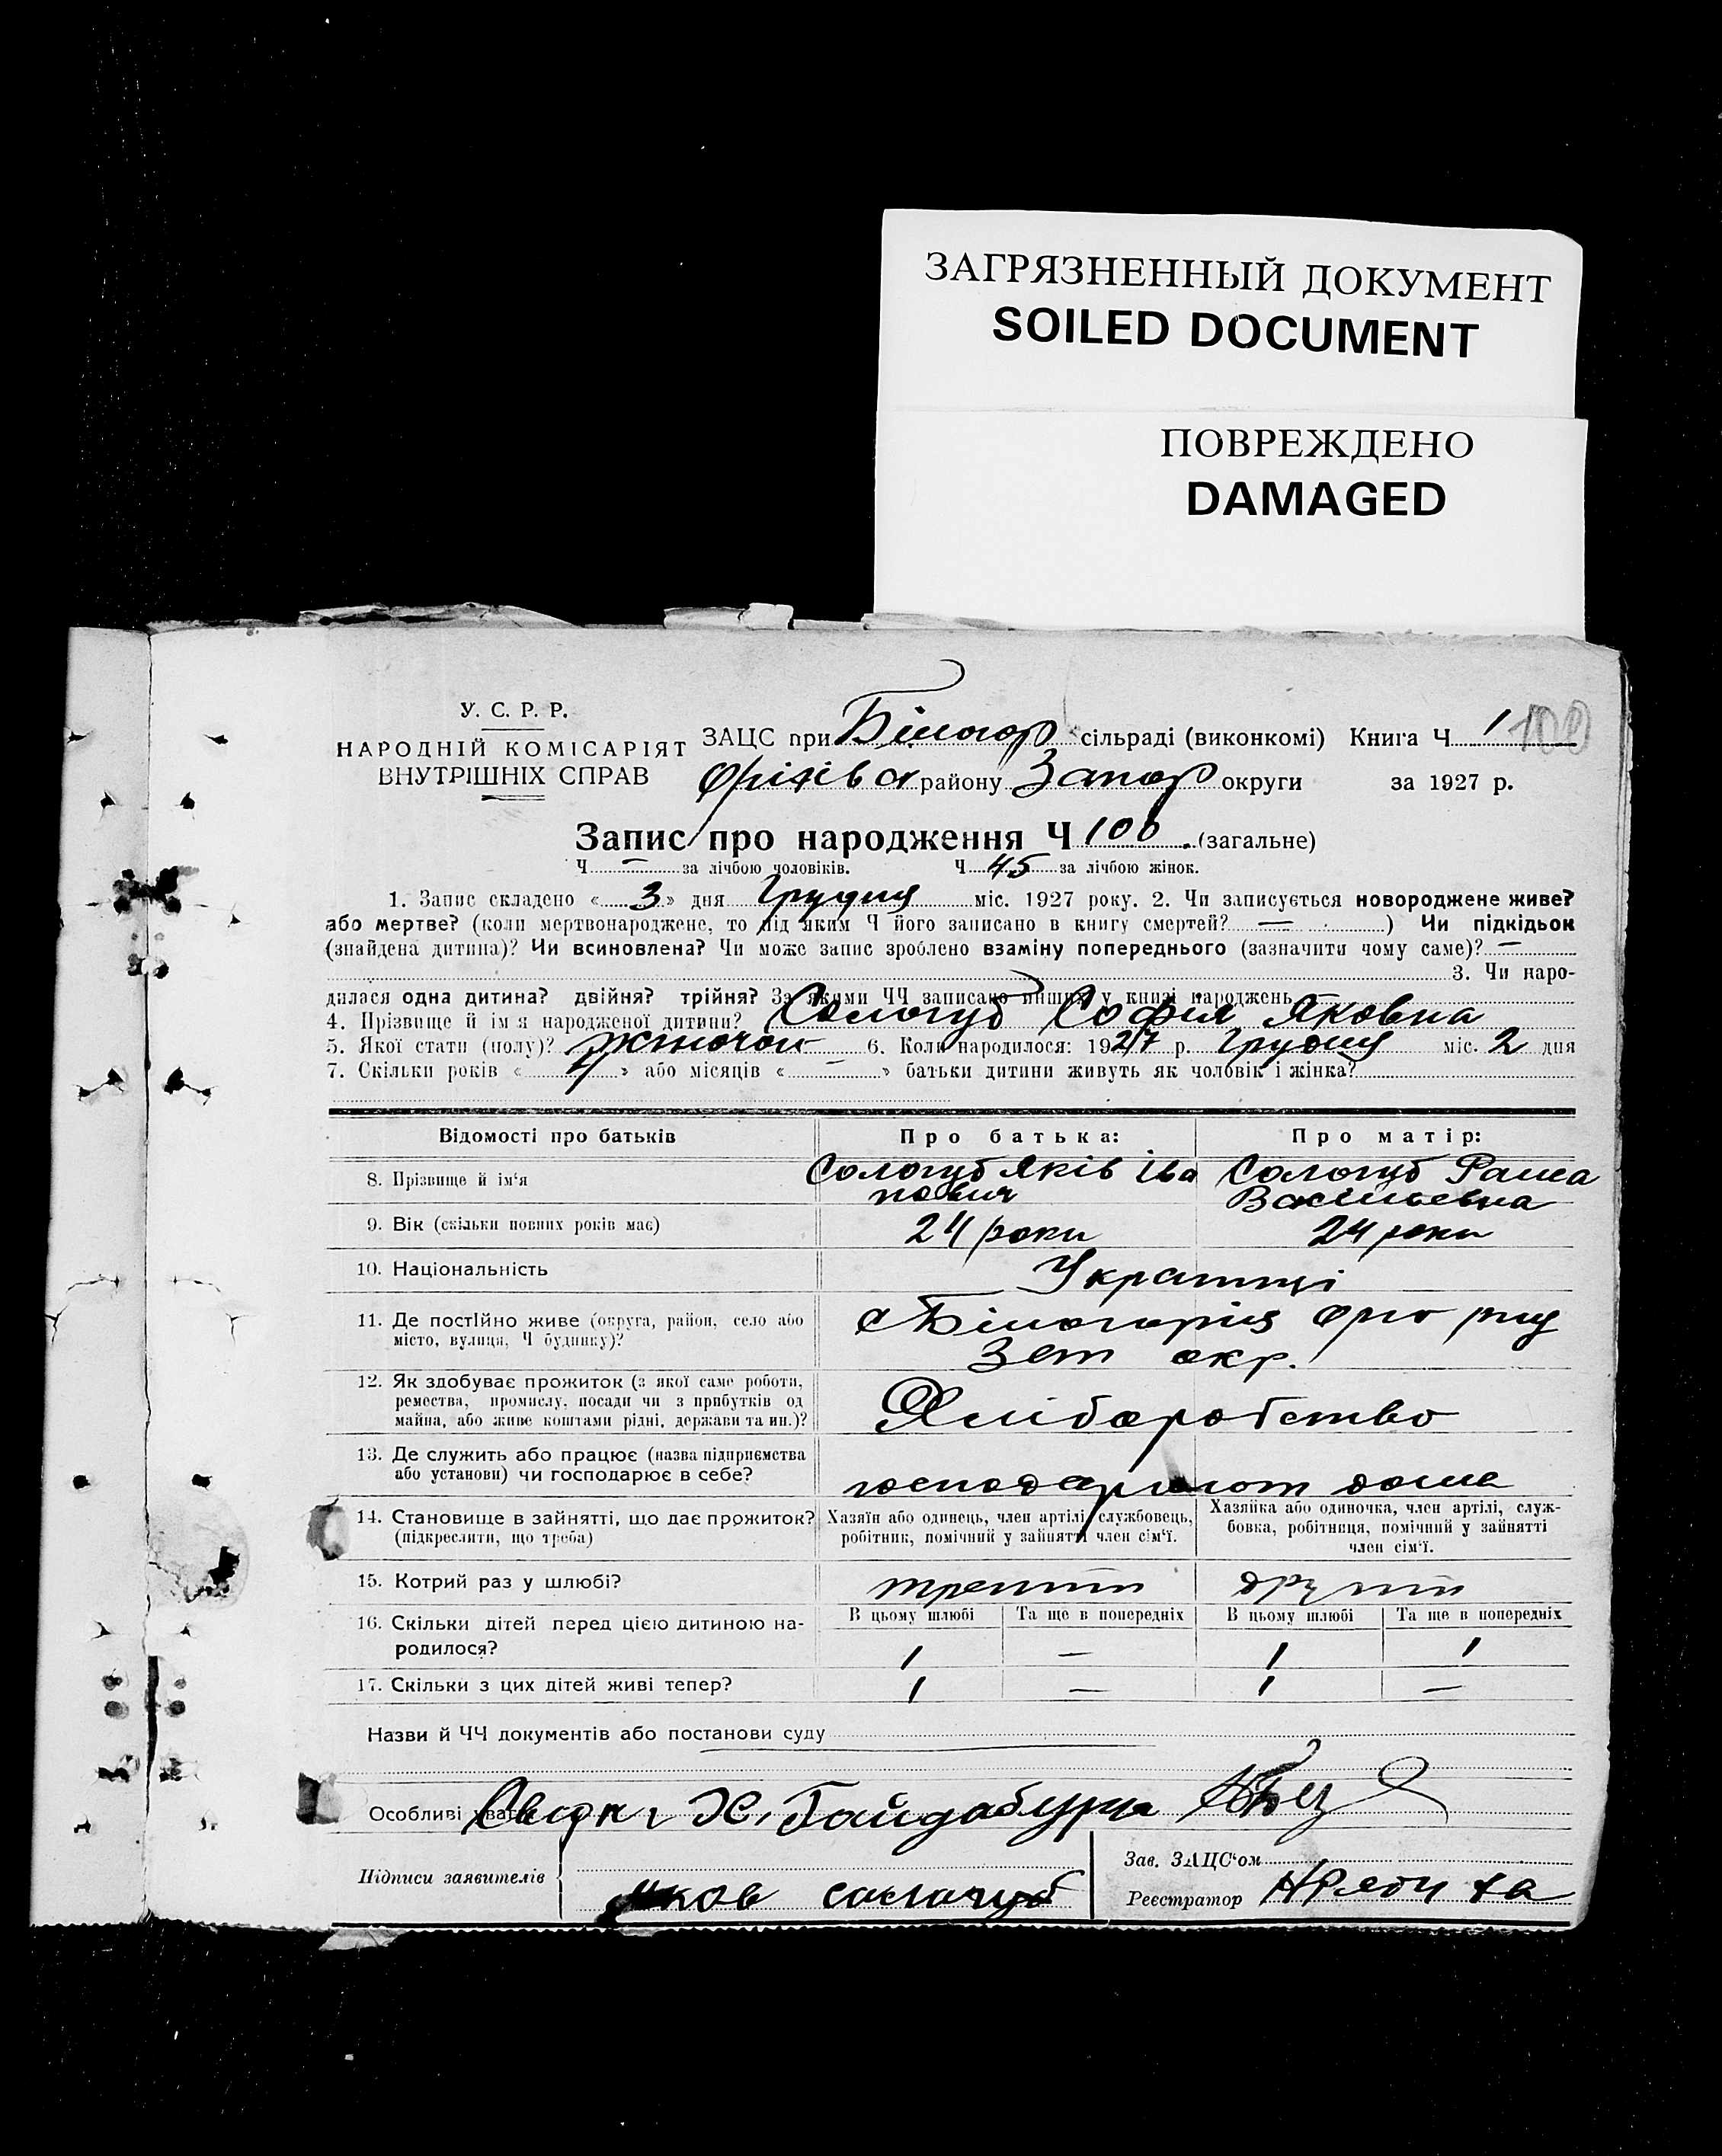 ЗАГРЯЗНЕННЫЙ ДОКУМЕНТ
SOILED DOCUMENT
ПОВРЕЖДЕНО
DAMAGED
У. С. Р. Р.
НАРОДНІЙ КОМІСАРІЯТ
ВНУТРІШНІХ СПРАВ
ЗАЦС при Білогор сільраді (виконкомі) Книга Ч 1 100
району Запор округи за 1927 р.
Запис про народження Ч 100 (загальне)
Ч — за лічбою чоловіків. Ч 45 за лічбою жінок.
1. Запис складено « 3 » дня Грудня міс. 1927 року. 2. Чи записується новороджене живе?
або мертве? (коли мертвонароджене, то під яким Ч його записано в книгу смертей? — ) Чи підкідьок
(знайдена дитина)? Чи всиновлена? Чи може запис зроблено взаміну попереднього (зазначити чому саме)? —
3. Чи наро-
дилася одна дитина? двійня? трійня? За якими ЧЧ записано инших у книзі народжень
4. Прізвище й ім'я народженої дитини? Сологуб Софія Яковна
5. Якої стати (полу)? жіночої 6. Коли народилося: 1927 р. Грудня міс. 2 дня
7. Скільки років « » або місяців « — » батьки дитини живуть як чоловік і жінка?
Відомості про батьків Про батька: Про матір:
8. Прізвище й ім'я Сологуб Яків Іва Сологуб
нович Васільевна
9. Вік (скільки повних років має) 24 роки 24 роки
10. Національність Українці
11. Де постІйно живе (округа, район, село або
місто, вулиця, Ч будинку)?
с Білогорія
окр.
12. Як здобуває прожиток (з якої саме роботи,
ремества, промислу, посади чи з прибутків од
майна, або живе коштами рідні, держави та ин.)?
Хліборобство
13. Де служить або працює (назва підприємства
або установи) чи господарює в себе?
господарюют дома
14. Становище в зайнятті, що дає прожиток?
(підкреслити, що треба)
Хазяїн або одинець, член артілі, службовець,
робітник, помічний у зайнятті член сім'ї.
Хазяйка або одиночка, член артілі, служ-
бовка, робітниця, помічний у зайнятті
член сім'ї.
15. Котрий раз у шлюбі? третій другий
16. Скільки дітей перед цією дитиною на-
родилося?
В цьому шлюбі Та ще в попередніх В цьому шлюбі Та ще в попередніх
1 — 1 1
17. Скільки з цих дітей живі тепер? 1 — 1 —
Назви й ЧЧ документів або постанови суду
Особливі уваги Гайдабура
Підписи заявителів
Яков сологуб
Зав. ЗАЦС'ом
Реєстратор